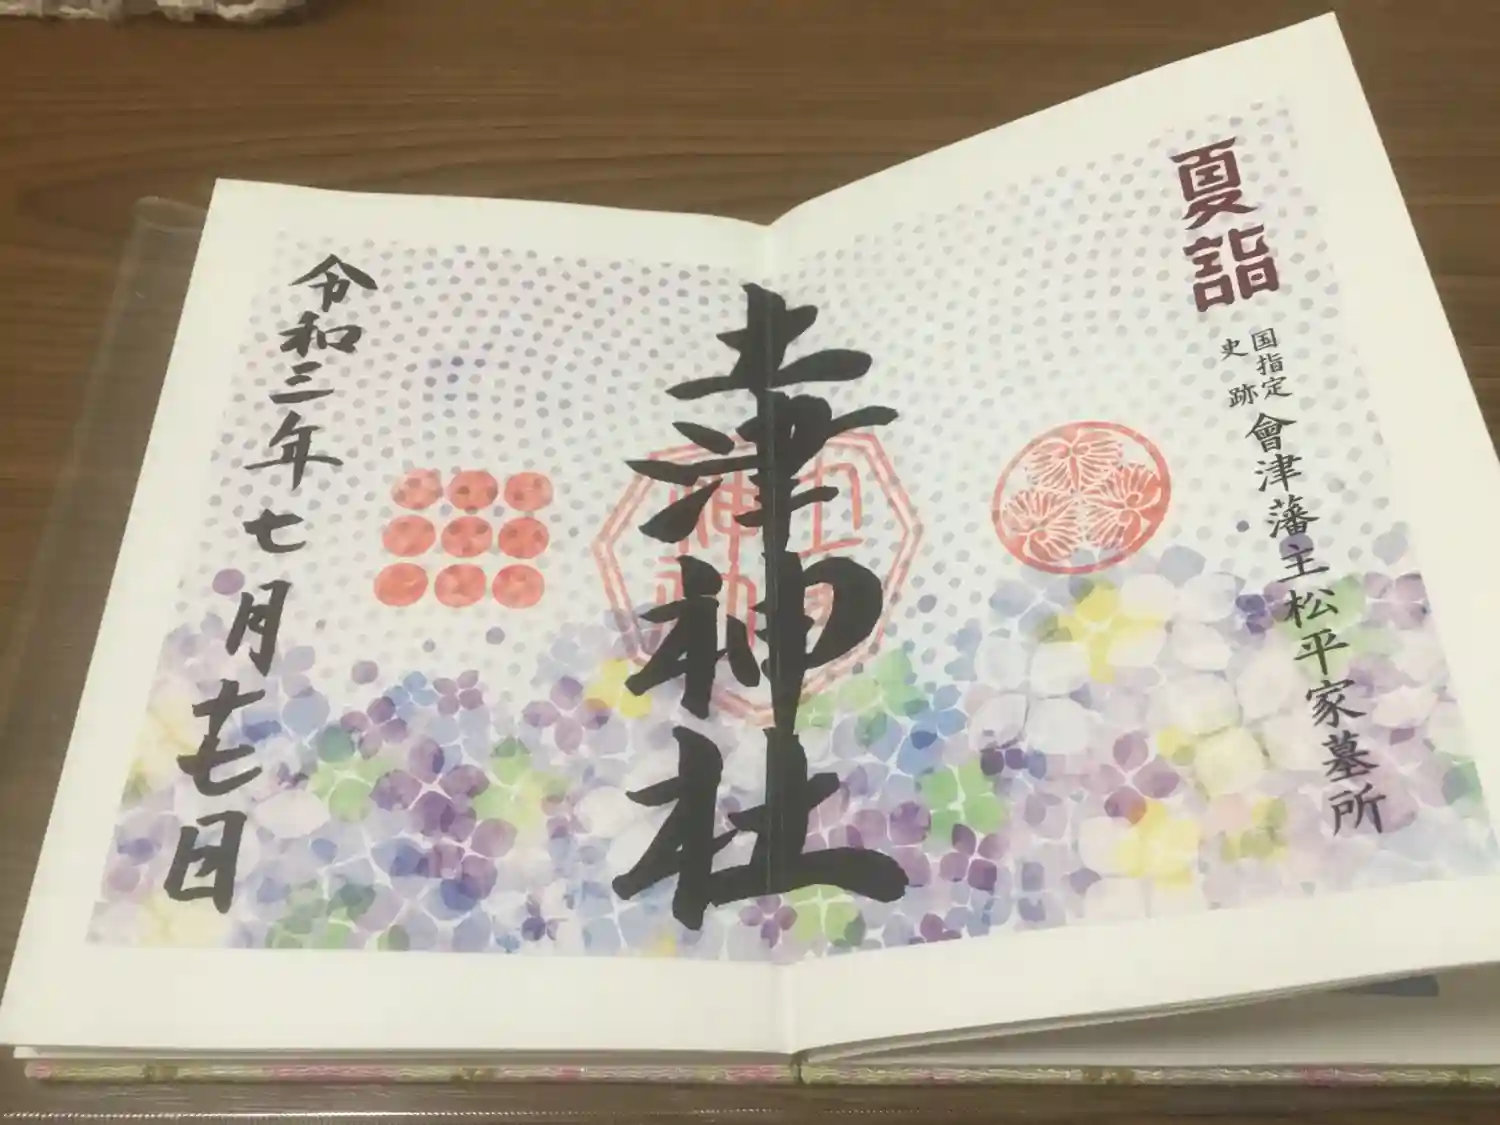 夏詣
国指定
史跡
會津藩主松平家墓所
土津神社
令和三年七月十七日